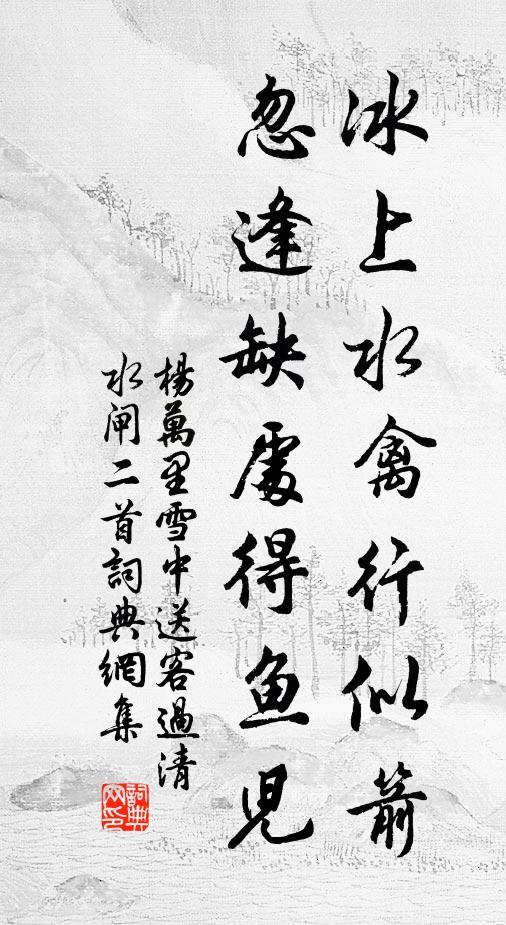 冰上水禽行似箭
忽逢缺處得魚兒
楊萬里雪中送客過清
水閘二首詞典網集
詞典網印